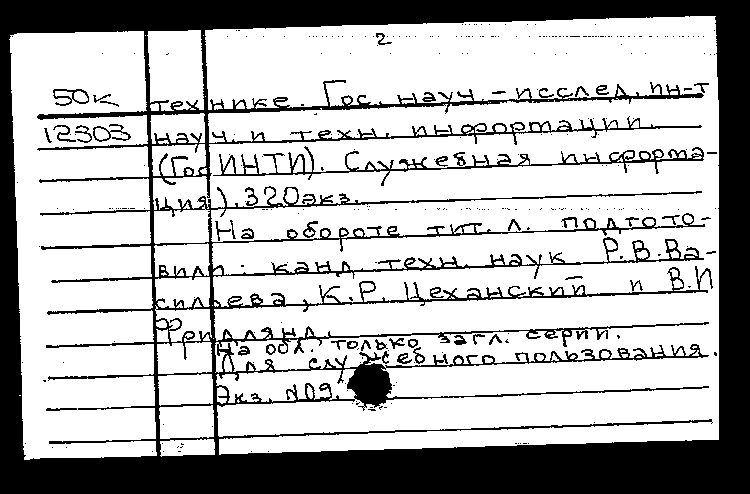 2
50к технике. Гос. науч.-исслед. ин-т
12303 науч. и техн. информации.
(ГосИНТИ). Служебная информа-
ция). 320 экз.
На обороте тит. л. подгото-
вили: канд. техн. наук Р.В.Ва-
сильева, К.Р. Цеханский и В.И
Фридлянд.
На обл. только загл. серии.
Для служебного пользования.
Экз. №09.